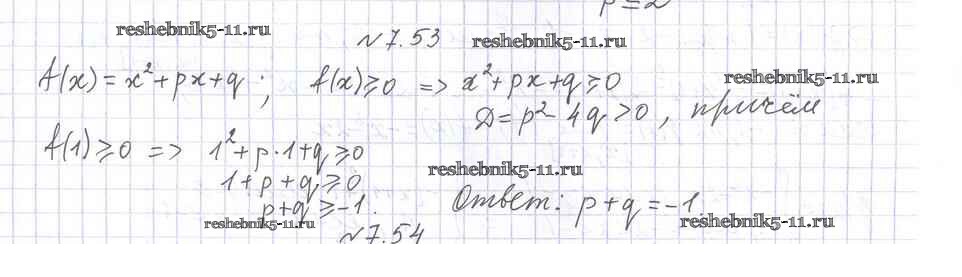 p=2
reshebnik5-11.ru
№7.53 reshebnik5-11.ru
f(x)=x²+px+q; f(x)≥0 => x²+px+q≥0 reshebnik5-11.ru
D=p²-4q>0, причём
f(1)≥0 => 1²+p·1+q≥0
reshebnik5-11.ru
1+p+q≥0
p+q≥-1. Ответ: p+q=-1.
reshebnik5-11.ru reshebnik5-11.ru
№7.54